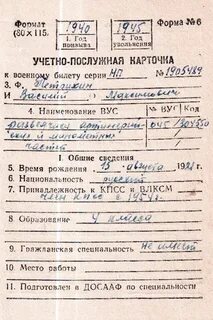 Формат (80 X 115.
1940
1. Год призыва
1945
2. Год увольнения
Форма № 6
УЧЕТНО-ПОСЛУЖНАЯ КАРТОЧКА
к военному билету серии НП № 1905489
3. Ф.
Василий Максимович
4. Наименование ВУС
ВУС
Код
разведчик
частей
I. Общие сведения
5. Время рождения 15 августа
6. Национальность русский
7. Принадлежность к КПСС и ВЛКСМ
член КПСС с 1954 г.
8 Образование 4 класса
9. Гражданская специальность не имеет
10. Место работы
11. Подготовлен в ДОСААФ по специальности